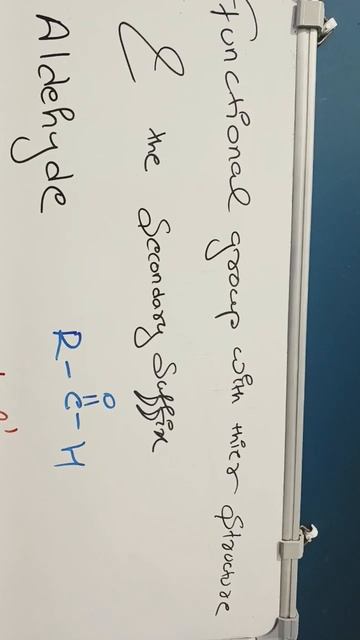 functional group with thier Structure
& the Secondary Suffix
Aldehyde R-C-H
O